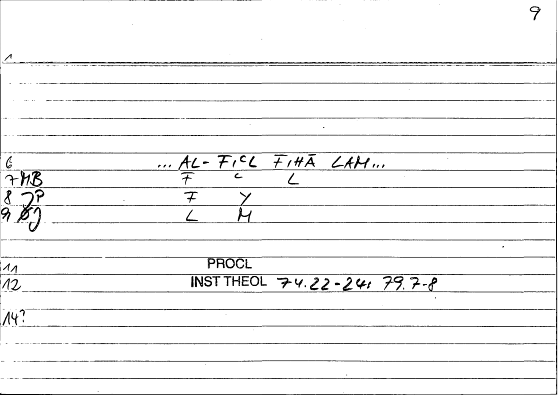 9
1
6 ... AL- FIʿL FĪHĀ LAM...
7 MB F ʿ L
8 JP F Y
9 J L M
11 PROCL
12 INST THEOL 74.22-24; 79.7-8
14?